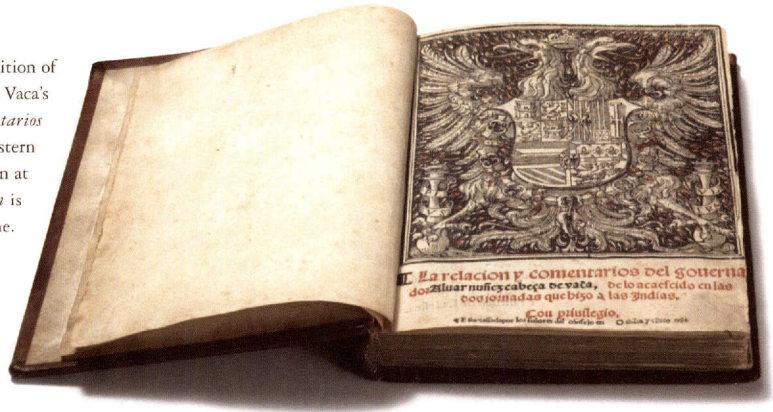 ition of
Vaca's
tarios
stern
n at
n is
ne.
La relacion y comentarios del gouerna
dor Aluar nuñez cabeça de vaca, de lo acaescido en las
dos jornadas que hizo a las Indias.
Con priuilegio.
por los señores del consejo en